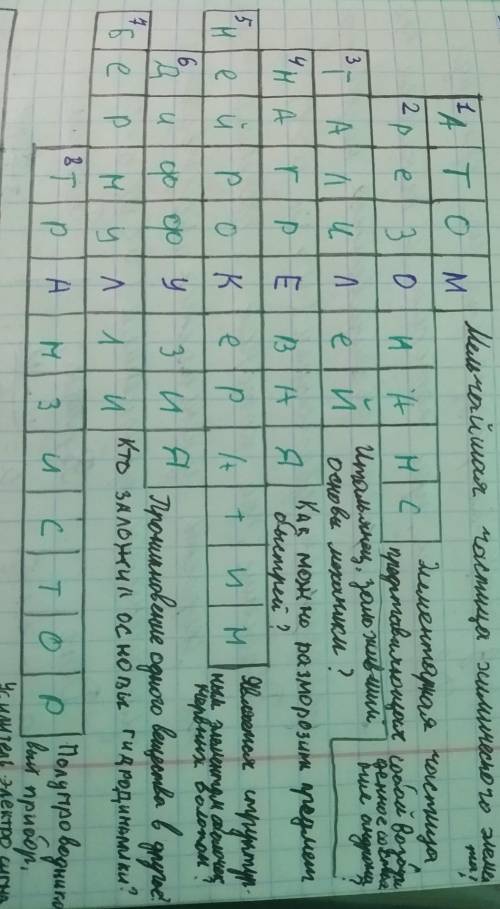 1 АТОМ
Мельчайшая частица химического
2 резонанс
Элементарная частица
представляющая собой
3 Галилей
Итальянец, заложивший
основы механики?
4 НАГРЕВАЯ
Как можно разморозить предмет
быстрей?
5 Нейрокератин
Является структур-
ным элементом
нервных волокон?
6 Диффузия
Проникновение одного вещества в другое?
7 Бермулли
Кто заложил основы гидродинамики?
8 ТрАнзистор
Полупроводнико
вый прибор,
Усилитель электро